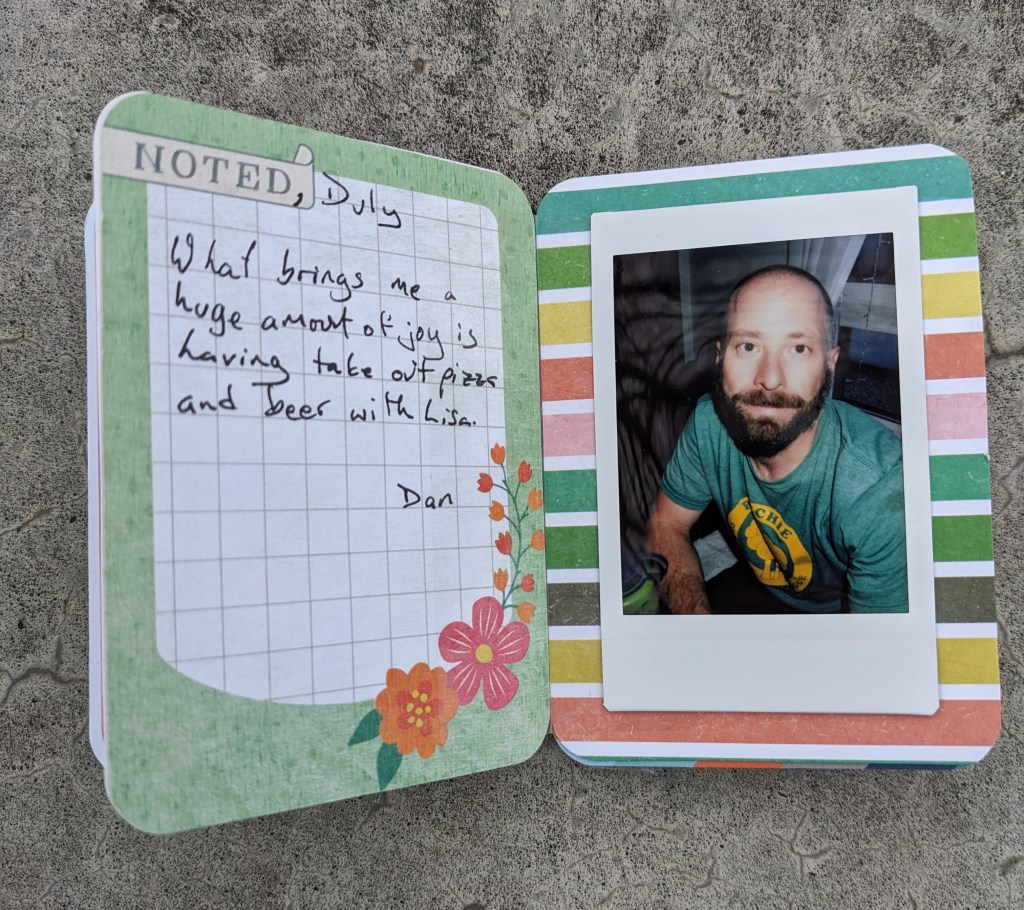 NOTED, Duly
What brings me a
huge amout of joy is
having take out pizza
and beer with Lisa.
Dan